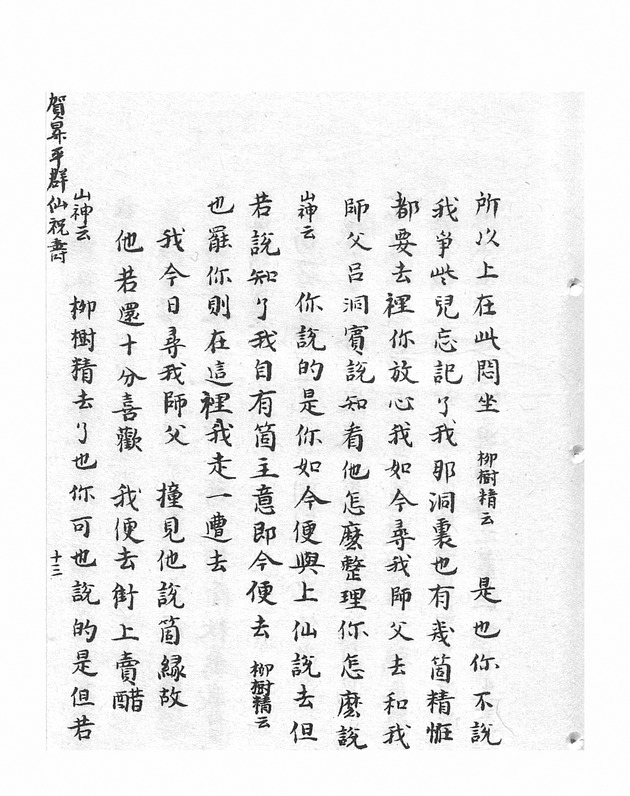 所以上在此悶坐 柳樹精云 是也你不說
我爭些兒忘記了我那洞裏也有幾箇精恠
都要去裡你放心我如今尋我師父去和我
師父呂洞賓說知看他怎麽整理你怎麽說
山神云 你說的是你如今便與上仙說去但
若說知了我自有箇主意即今便去 柳樹精云
也罷你則在這裡我走一遭去
我今日尋我師父 撞見他說箇緣故
他若還十分喜歡 我便去街上賣醋
山神云 柳樹精去了也你可也說的是但若
賀昇平群仙祝壽
十三